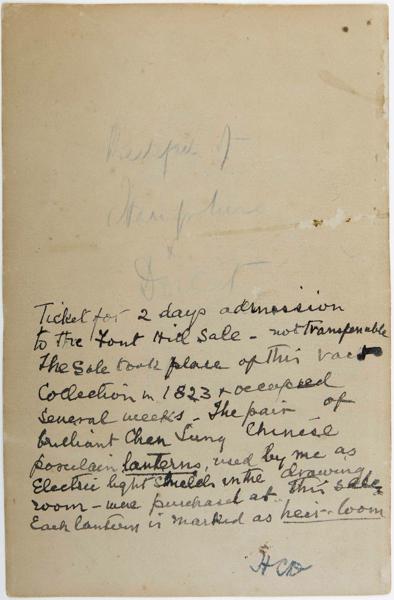 of
Hampshire
&
Dorset
Ticket for 2 days admission
to the Font Hill Sale - not transferable
The Sale took place of this vast
Collection in 1823 & occupied
several weeks - The pair of
brilliant Chen Lung Chinese
porcelain lanterns, used by me as
Electric light shields in the drawing
room - were purchased at this sale
Each lantern is marked as heir-loom
HCD